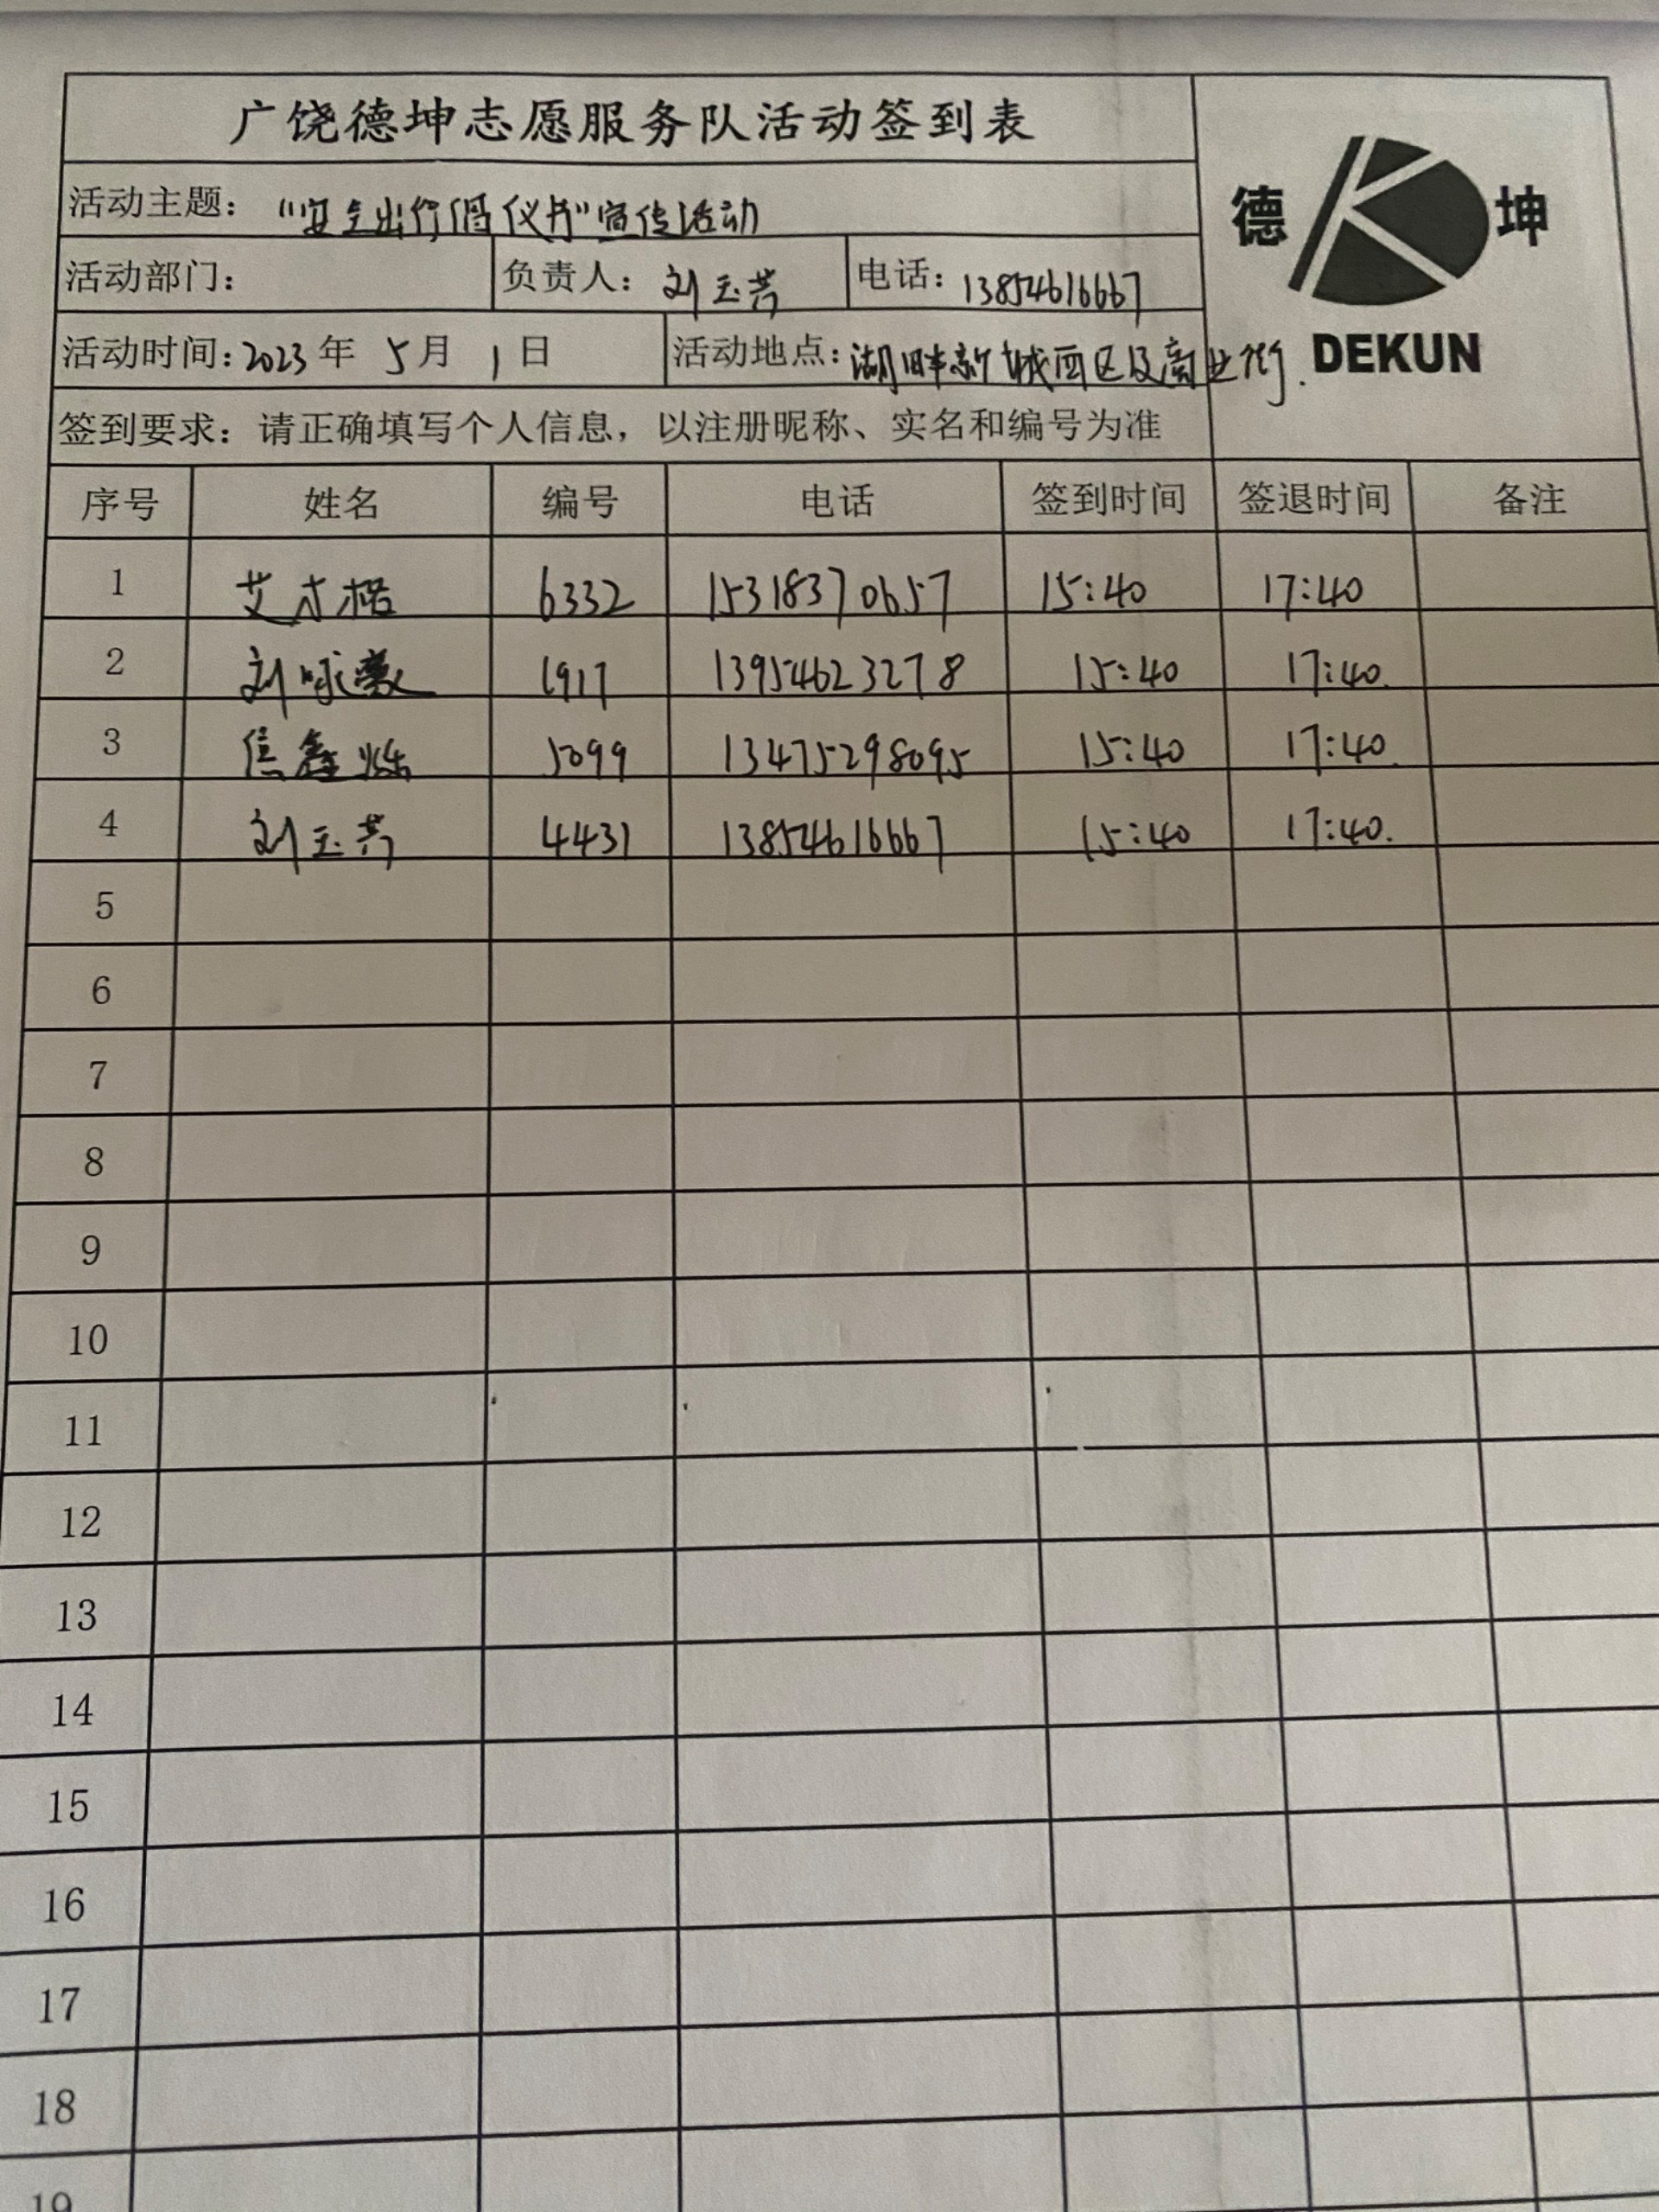 广饶德坤志愿服务队活动签到表
德 坤
DEKUN
活动主题：“安全出行倡仪书”宣传活动
活动部门： 负责人：刘玉芳 电话：13854616667
活动时间：2023年 5月 1日 活动地点：湖畔新城西区及商业街.
签到要求：请正确填写个人信息，以注册昵称、实名和编号为准
序号 姓名 编号 电话 签到时间 签退时间 备注
1 艾才 6332 15318370657 15:40 17:40
2 刘咏 1917 13954623278 15:40 17:40.
3 信鑫烁 5099 13475298095 15:40 17:40.
4 刘玉芳 4431 13854616667 15:40 17:40.
5
6
7
8
9
10
11
12
13
14
15
16
17
18
19